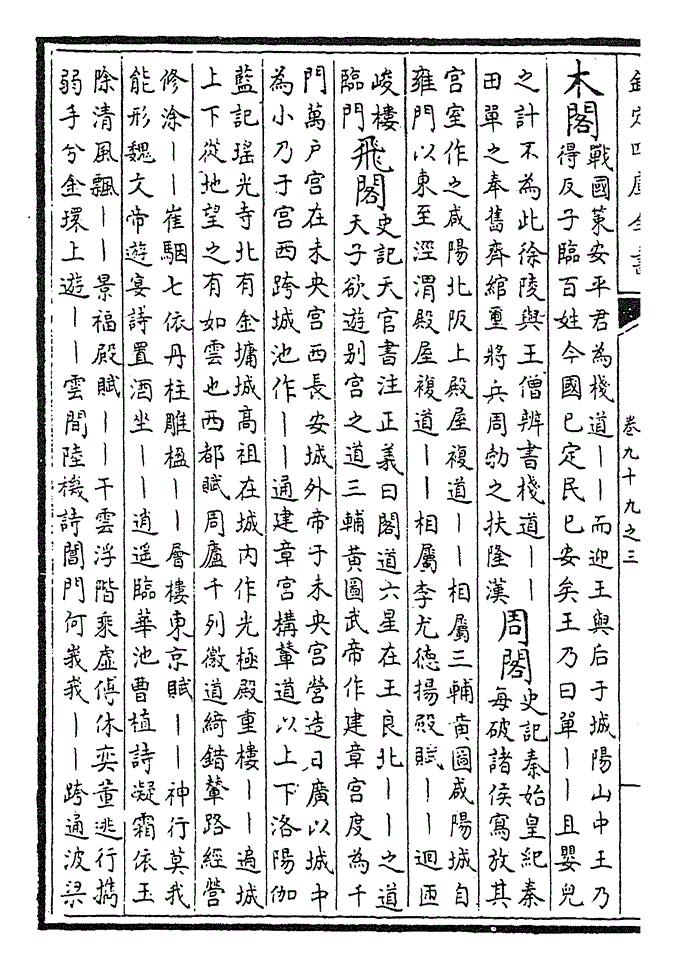 欽定四庫全書
卷九十九之三
木閣
戰國䇿安平君為棧道丨丨而迎王與后于城陽山中王乃
得反子臨百姓今國已定民已安矣王乃曰單丨丨且嬰兒
之計不為此徐陵與王僧辨書棧道丨丨
田單之奉舊齊綰璽將兵周勃之扶隆漢
周閣
史記秦始皇紀秦
每破諸侯寫放其
宮室作之咸陽北阪上殿屋複道丨丨相屬三輔黄圖咸陽城自
雍門以東至涇渭殿屋複道丨丨相屬李尤德揚殿賦丨丨迴匝
峻樓
臨門
飛閣
史記天官書注正義曰閣道六星在王良北丨丨之道
天子欲遊别宮之道三輔黄圖武帝作建章宮度為千
門萬户宮在未央宮西長安城外帝于未央宮營造日廣以城中
為小乃于宮西跨城池作丨丨通建章宮構輦道以上下洛陽伽
藍記瑶光寺北有金墉城高祖在城内作光極殿重樓丨丨遍城
上下從地望之有如雲也西都賦周廬千列徼道綺錯輦路經營
修涂丨丨崔駰七依丹柱雕楹丨丨層樓東京賦丨丨神行莫我
能形魏文帝遊宴詩置酒坐丨丨逍遥臨華池曹植詩凝霜依玉
除清風飄丨丨景福殿賦丨丨干雲浮階乘虚傅休奕董逃行擕
弱手兮金環上遊丨丨雲間陸機詩閶門何峩峩丨丨跨通波梁